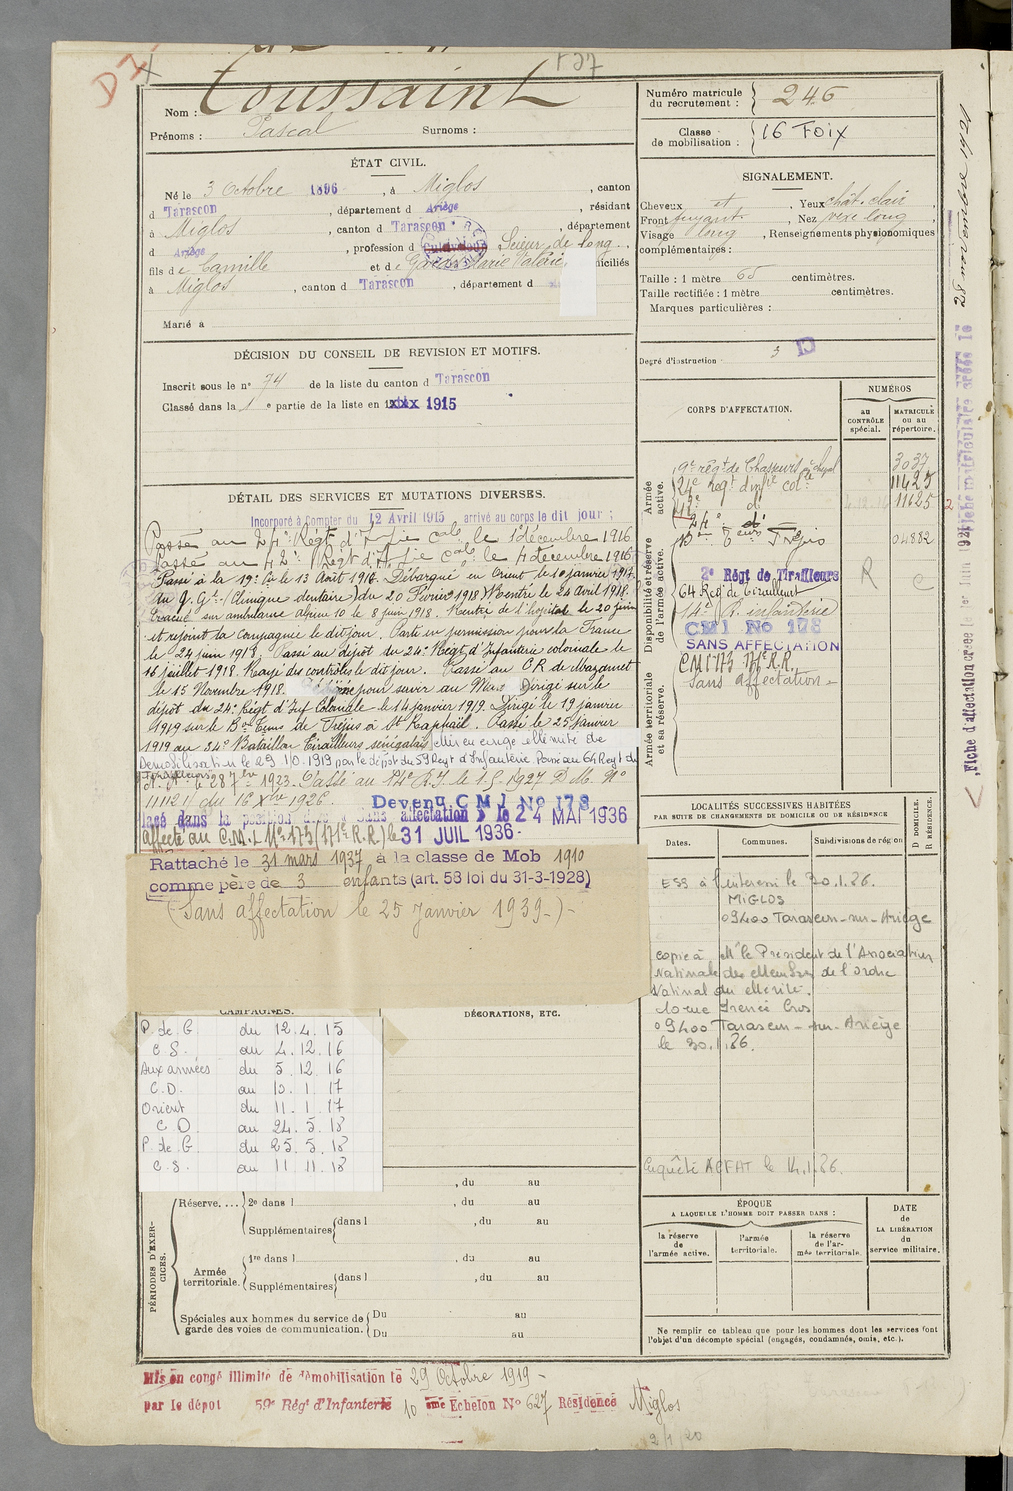 D 7
127
Nom : Toussaint
Prénoms : Pascal Surnoms :
ÉTAT CIVIL.
Né le 3 Octobre 1896, à Miglos, canton
d Tarascon, département d Ariège, résidant
à Miglos, canton d Tarascon, département
d Ariège, profession d Cultivateur Scieur de long,
fils de Camille et de Marie Valérie, domiciliés
à Miglos, canton d Tarascon, département d
Marié à
DÉCISION DU CONSEIL DE REVISION ET MOTIFS.
Inscrit sous le n° 74 de la liste du canton d Tarascon
Classé dans la 1 e partie de la liste en 1915
DÉTAIL DES SERVICES ET MUTATIONS DIVERSES.
Incorporé à Compter du 12 Avril 1915 arrivé au corps le dit jour ;
Passé au 24e Régt d'Inf ie Cale le 1 décembre 1916
Passé au 42e Régt d'Inf ie Cale le 4 décembre 1916
Passé à la 19e Cie le 13 Août 1916. Débarqué en Orient le 10 janvier 1917.
du Q. Gt. (Clinique dentaire) du 20 Février 1918. Rentré le 24 avril 1918.
Evacué sur ambulance alpine 10 le 8 juin 1918. Rentré de l'hopital le 20 juin
et rejoint la compagnie le dit jour. Parti en permission pour la France
le 24 juin 1918. Passé au dépôt du 24e Régt d'Infanterie coloniale le
16 juillet 1918. Rayé des contrôles le dit jour. Passé au C.R. de Mazamet
le 15 Novembre 1918. pour servir au Dirigé sur le
dépôt du 24e Régt d'Inf Coloniale le 14 janvier 1919. Dirigé le 19 janvier
1919 sur le Bon Tirns de Fréjus à St Raphaël. Passé le 25 janvier
1919 au 84e Bataillon Tirailleurs sénégalais. Mis en congé illimité de
Démobilisation le 29/10.1919 par le dépôt du 59 Regt d'Infanterie. Passé au 64 Regt de
Tirailleurs le 28 7bre 1923. Passé au 14e R.I. le 1.5.1927 D.M. N°
11112 du 16 Xbre 1926. Devenu C M I No 178
lacé dans la position dite « Sans affectation » le 24 MAI 1936
Affecté au C.M.I. N° 173 (171e R.R.) le 31 JUIL 1936-
Rattaché le 31 mars 1937 à la classe de Mob 1910
comme père de 3 enfants (art. 58 loi du 31-3-1928)
(Sans affectation le 25 Janvier 1939-)-
CAMPAGNES. DÉCORATIONS, ETC.
P. de G. du 12.4.15
C S. au 4.12.16
Aux armées du 5.12.16
C.D. au 10.1.17
Orient du 11.1.17
C D. au 24.5.18
P. de G. du 25.5.18
C.S. au 11.11.18
PÉRIODES D'EXERCICES.
, du au
Réserve.... 2e dans l , du au
Supplémentaires dans l , du au
Armée territoriale. 1re dans l , du au
Supplémentaires dans l , du au
Spéciales aux hommes du service de garde des voies de communication. Du au
Du au
Mis en congé illimité de démobilisation le 29 Octobre 1919-
par le dépôt 59e Régt d'Infanterie 10 ème Echelon N° 627 Résidence Miglos
2/1/20
Numéro matricule du recrutement : 246
Classe de mobilisation : 16 Foix
SIGNALEMENT.
Cheveux Yeux chât. clair,
Front fuyant, Nez vexe long,
Visage long, Renseignements physionomiques
complémentaires :
Taille : 1 mètre 65 centimètres.
Taille rectifiée : 1 mètre centimètres.
Marques particulières :
Degré d'instruction 3
CORPS D'AFFECTATION.
NUMÉROS
au CONTRÔLE spécial.
MATRICULE ou au répertoire.
Armée active.
Disponibilité et réserve de l'armée active.
Armée territoriale et sa réserve.
9e régt de Chasseurs à cheval 3037
24e Regt d'infie colle 11425
42e d° 11625
24e d°
Bon Teurs Fréjus 04882
2e Régt de Tirailleurs R C
64 Reg. de Tirailleurs
14e R. infanterie
CMI No 178
SANS AFFECTATION
CMI 173 171e R.R.
Sans affectation-
LOCALITÉS SUCCESSIVES HABITÉES
PAR SUITE DE CHANGEMENTS DE DOMICILE OU DE RÉSIDENCE
Dates. Communes. Subdivisions de région D DOMICILE. R RÉSIDENCE.
ESS à l'interessé le 30.1.86.
MIGLOS
09400 Tarascon-sur-Ariège
copie à Mr le Président de l'Association
Nationale des Membres de l'ordre
National du Mérite.
10 rue Irenée Cros
09400 Tarascon-sur-Ariège
le 30.1.86.
Enquête le 14.1.86.
ÉPOQUE
A LAQUELLE L'HOMME DOIT PASSER DANS :
la réserve de l'armée active.
l'armée territoriale.
la réserve de l'armée territoriale.
DATE de LA LIBÉRATION du service militaire.
Ne remplir ce tableau que pour les hommes dont les services font
l'objet d'un décompte spécial (engagés, condamnés, omis, etc.).